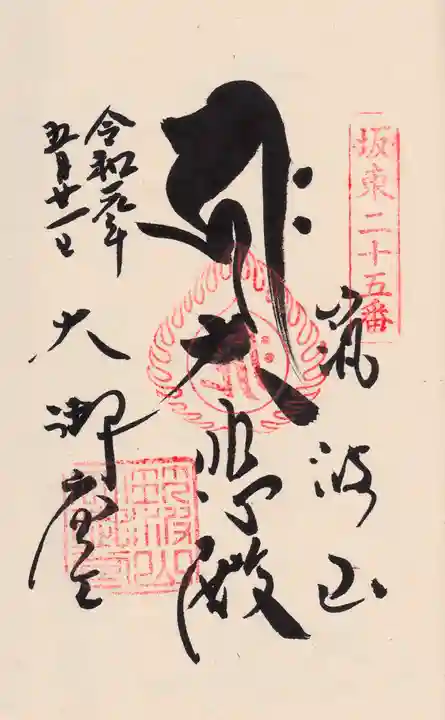 坂東二十五番
筑波山
𑖮𑖿𑖨𑖱𑖾 大悲殿
大御堂
令和元年
五月廿一日